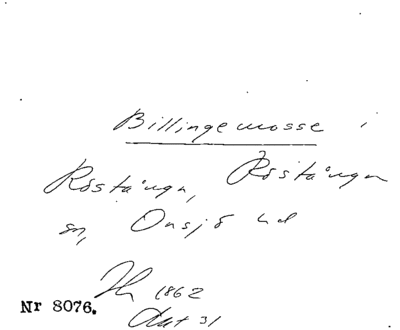 Billingemosse i
Röstånga, Röstånga
sn, Onsjö hd
1862
Nr 8076.
31